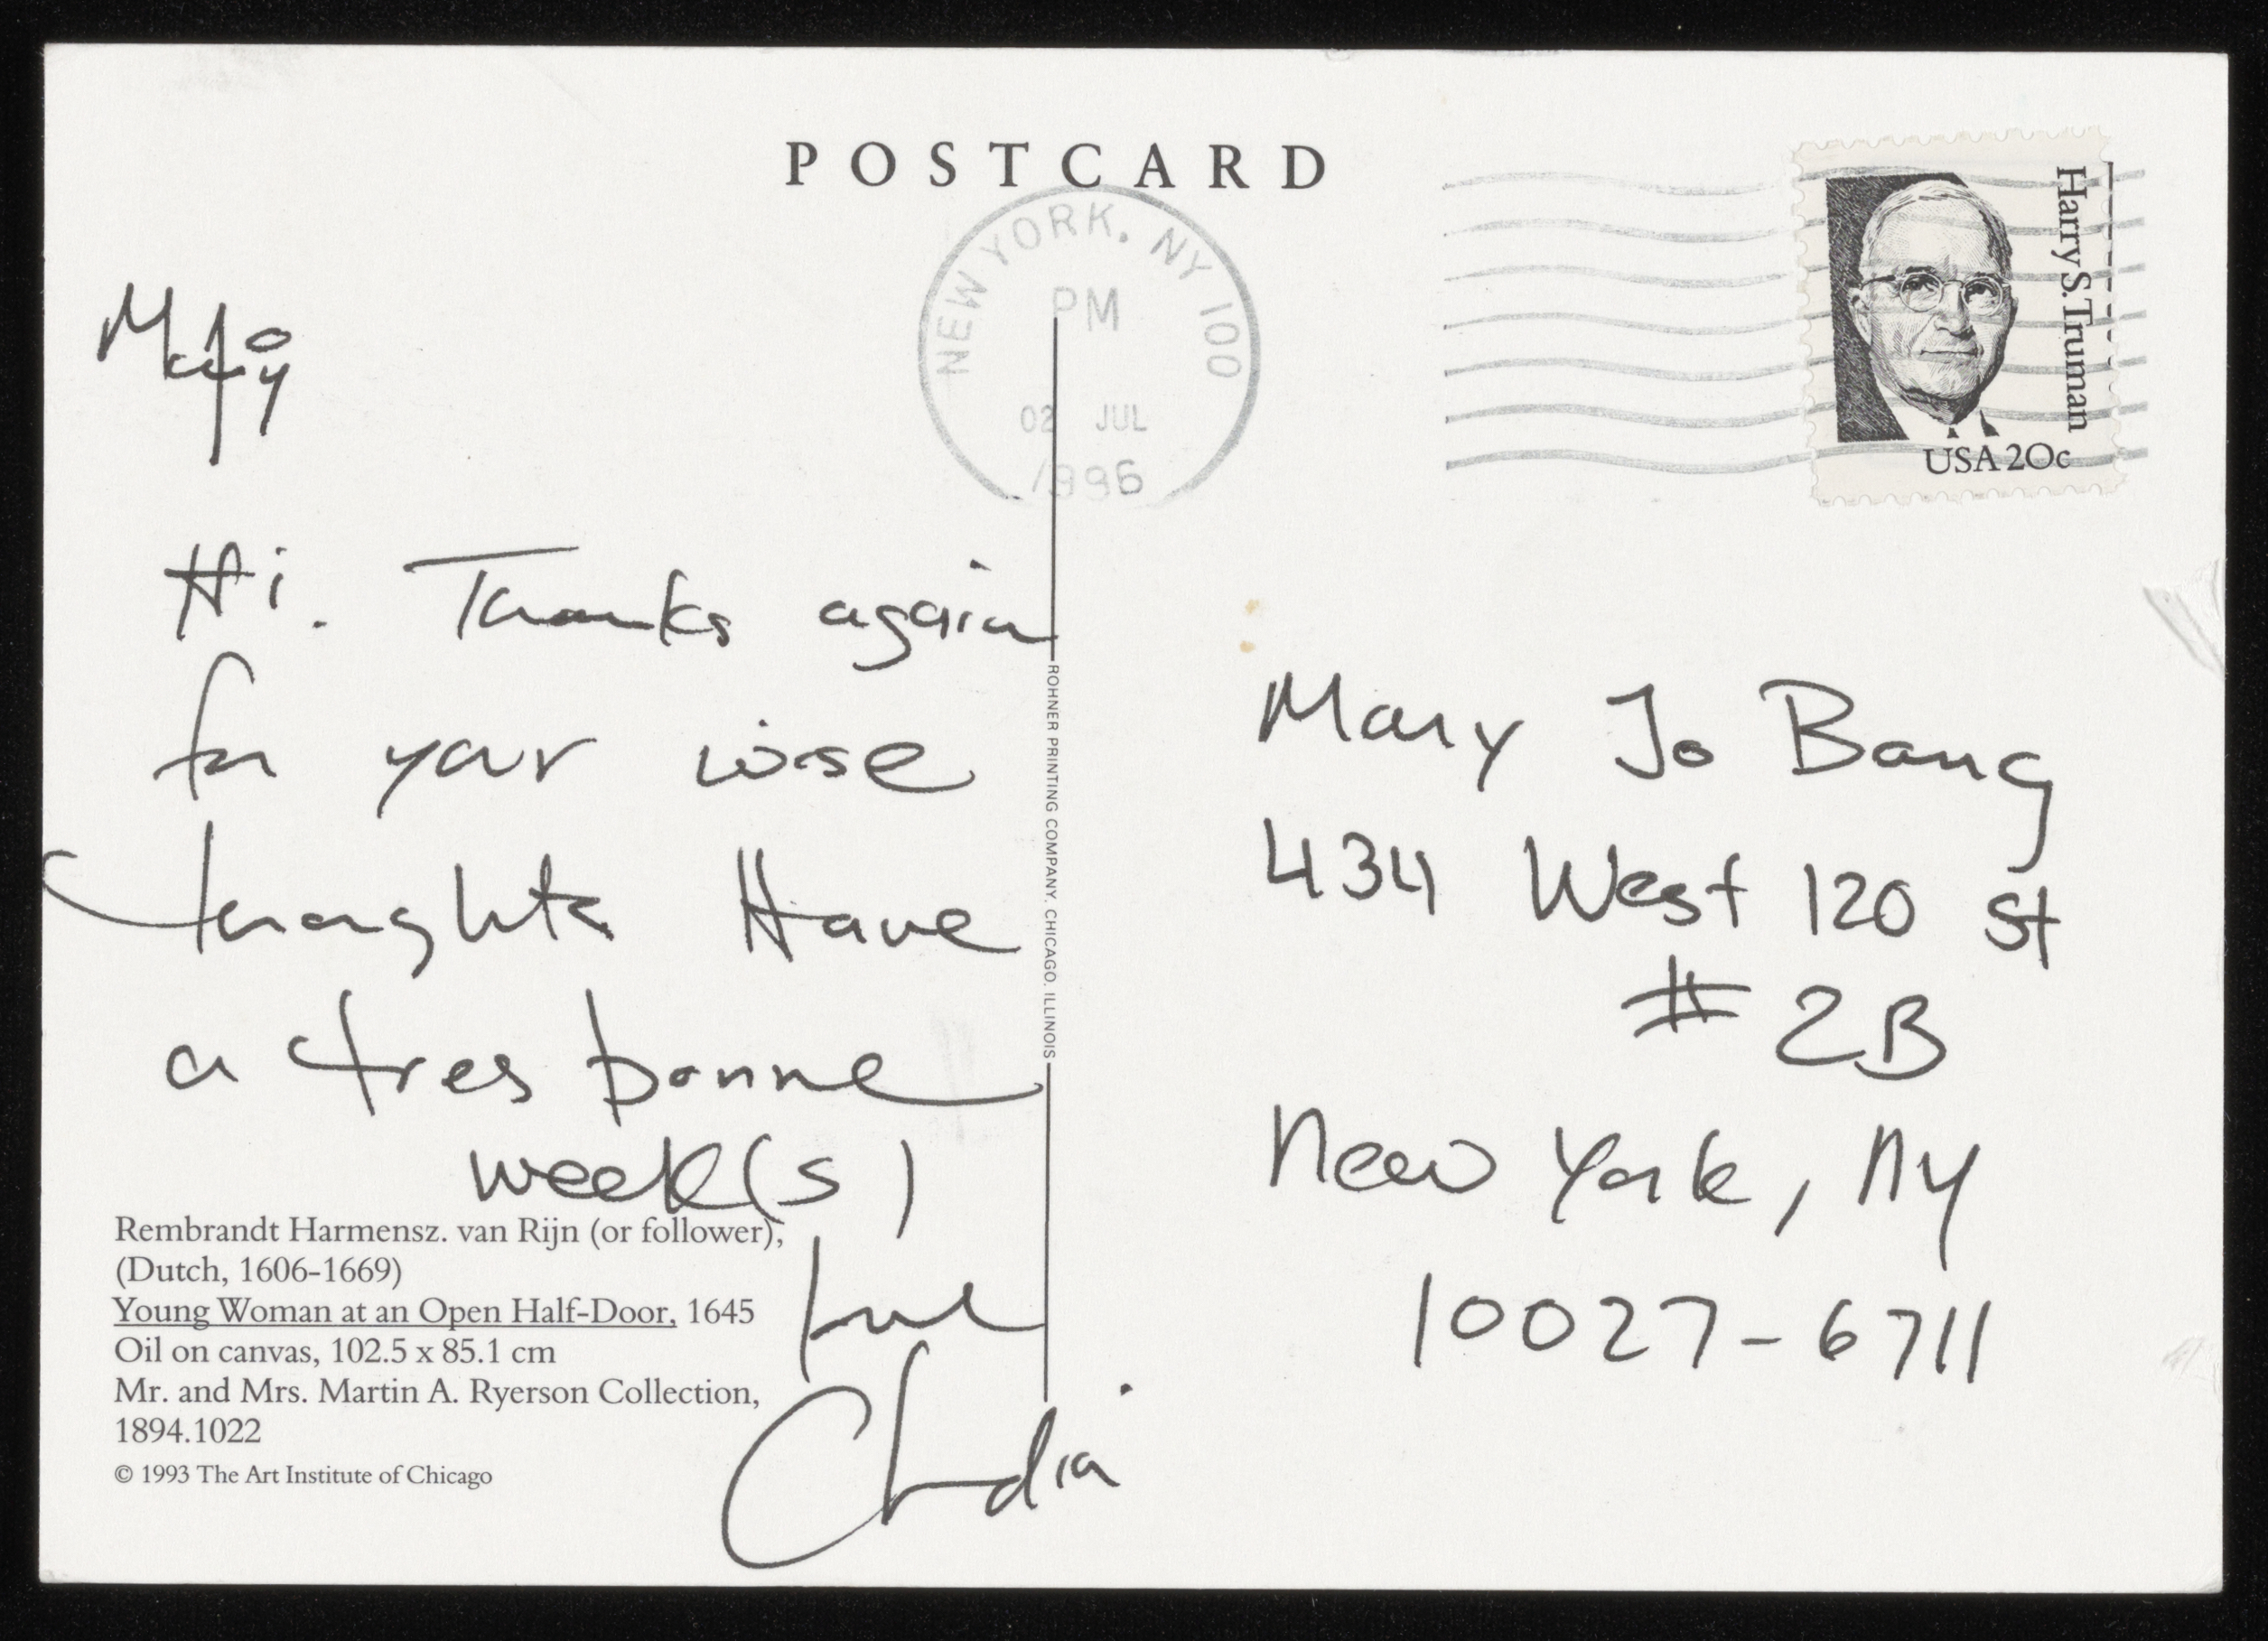 POSTCARD
NEW YORK, NY 100
PM
02 JUL
1996
Harry S. Truman
USA 20c
Hi. Thanks again
for your wise
thoughts Have
a tres bonne
week(s)
Love
Claudia
ROHNER PRINTING COMPANY, CHICAGO, ILLINOIS
Mary Jo Bang
434 West 120 St
# 2B
New York, NY
10027-6711
Rembrandt Harmensz. van Rijn (or follower),
(Dutch, 1606-1669)
Young Woman at an Open Half-Door, 1645
Oil on canvas, 102.5 x 85.1 cm
Mr. and Mrs. Martin A. Ryerson Collection,
1894.1022
© 1993 The Art Institute of Chicago